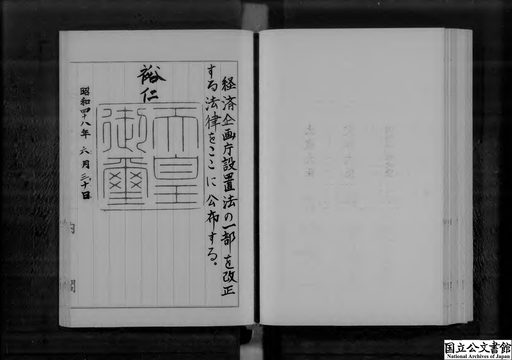 経済企画庁設置法の一部を改正
する法律をここに公布する。
裕仁
天皇
御璽
昭和四十八年六月三十日
国立公文書館
National Archives of Japan